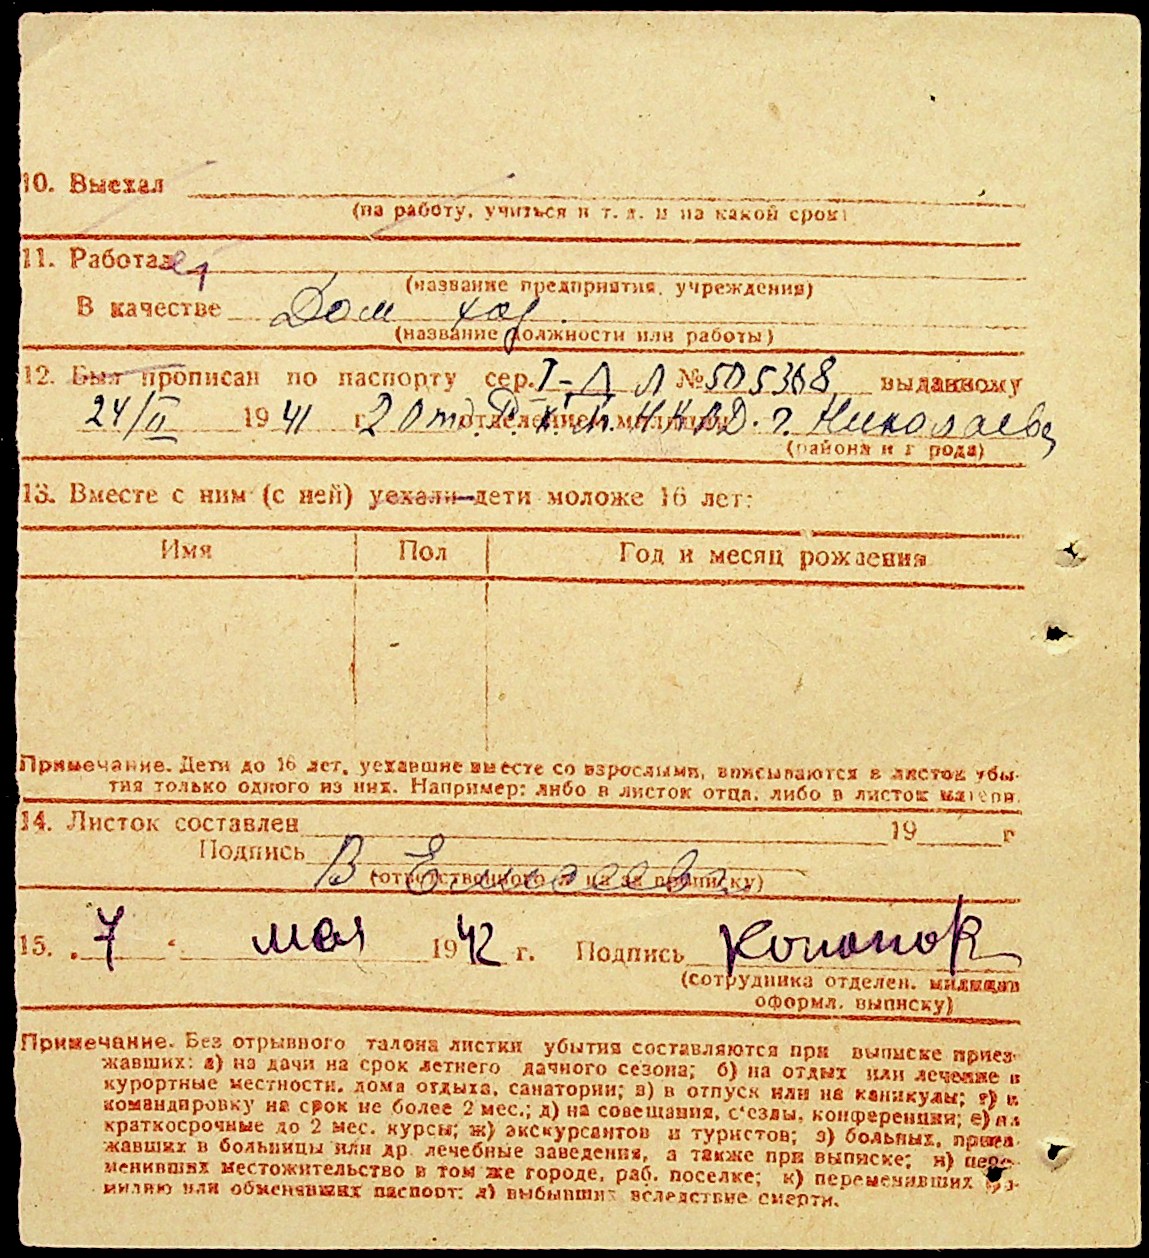 10. Выехал
(на работу, учиться и т. д. и на какой срок)
11. Работает
(название предприятия, учреждения)
В качестве Дом хоз.
(название должности или работы)
12. Был прописан по паспорту сер. I-Д Л № 505368 выданному
24/II 1941 г. 2 Отд. Р. К. М. НКВД. г. Николаева
отделением милиции
(района и города)
13. Вместе с ним (с ней) уехали дети моложе 16 лет:
Имя Пол Год и месяц рождения
Примечание. Дети до 16 лет, уехавшие вместе со взрослыми, вписываются в листок убы-
тия только одного из них. Например: либо в листок отца, либо в листок матери.
14. Листок составлен 19 г
Подпись В
(ответственного лица за прописку)
15. „7“ мая 1942 г. Подпись
(сотрудника отделен. милиции
оформл. выписку)
Примечание. Без отрывного талона листки убытия составляются при выписке приез-
жавших: а) на дачи на срок летнего дачного сезона; б) на отдых или лечение в
курортные местности, дома отдыха, санатории; в) в отпуск или на каникулы; г) в
командировку на срок не более 2 мес.; д) на совещания, с'езды, конференции; е) на
краткосрочные до 2 мес. курсы; ж) экскурсантов и туристов; з) больных, приез-
жавших в больницы или др. лечебные заведения, а также при выписке; и) пере-
менивших местожительство в том же городе, раб. поселке; к) переменивших фа-
милию или обменявших паспорт; л) выбывших вследствие смерти.